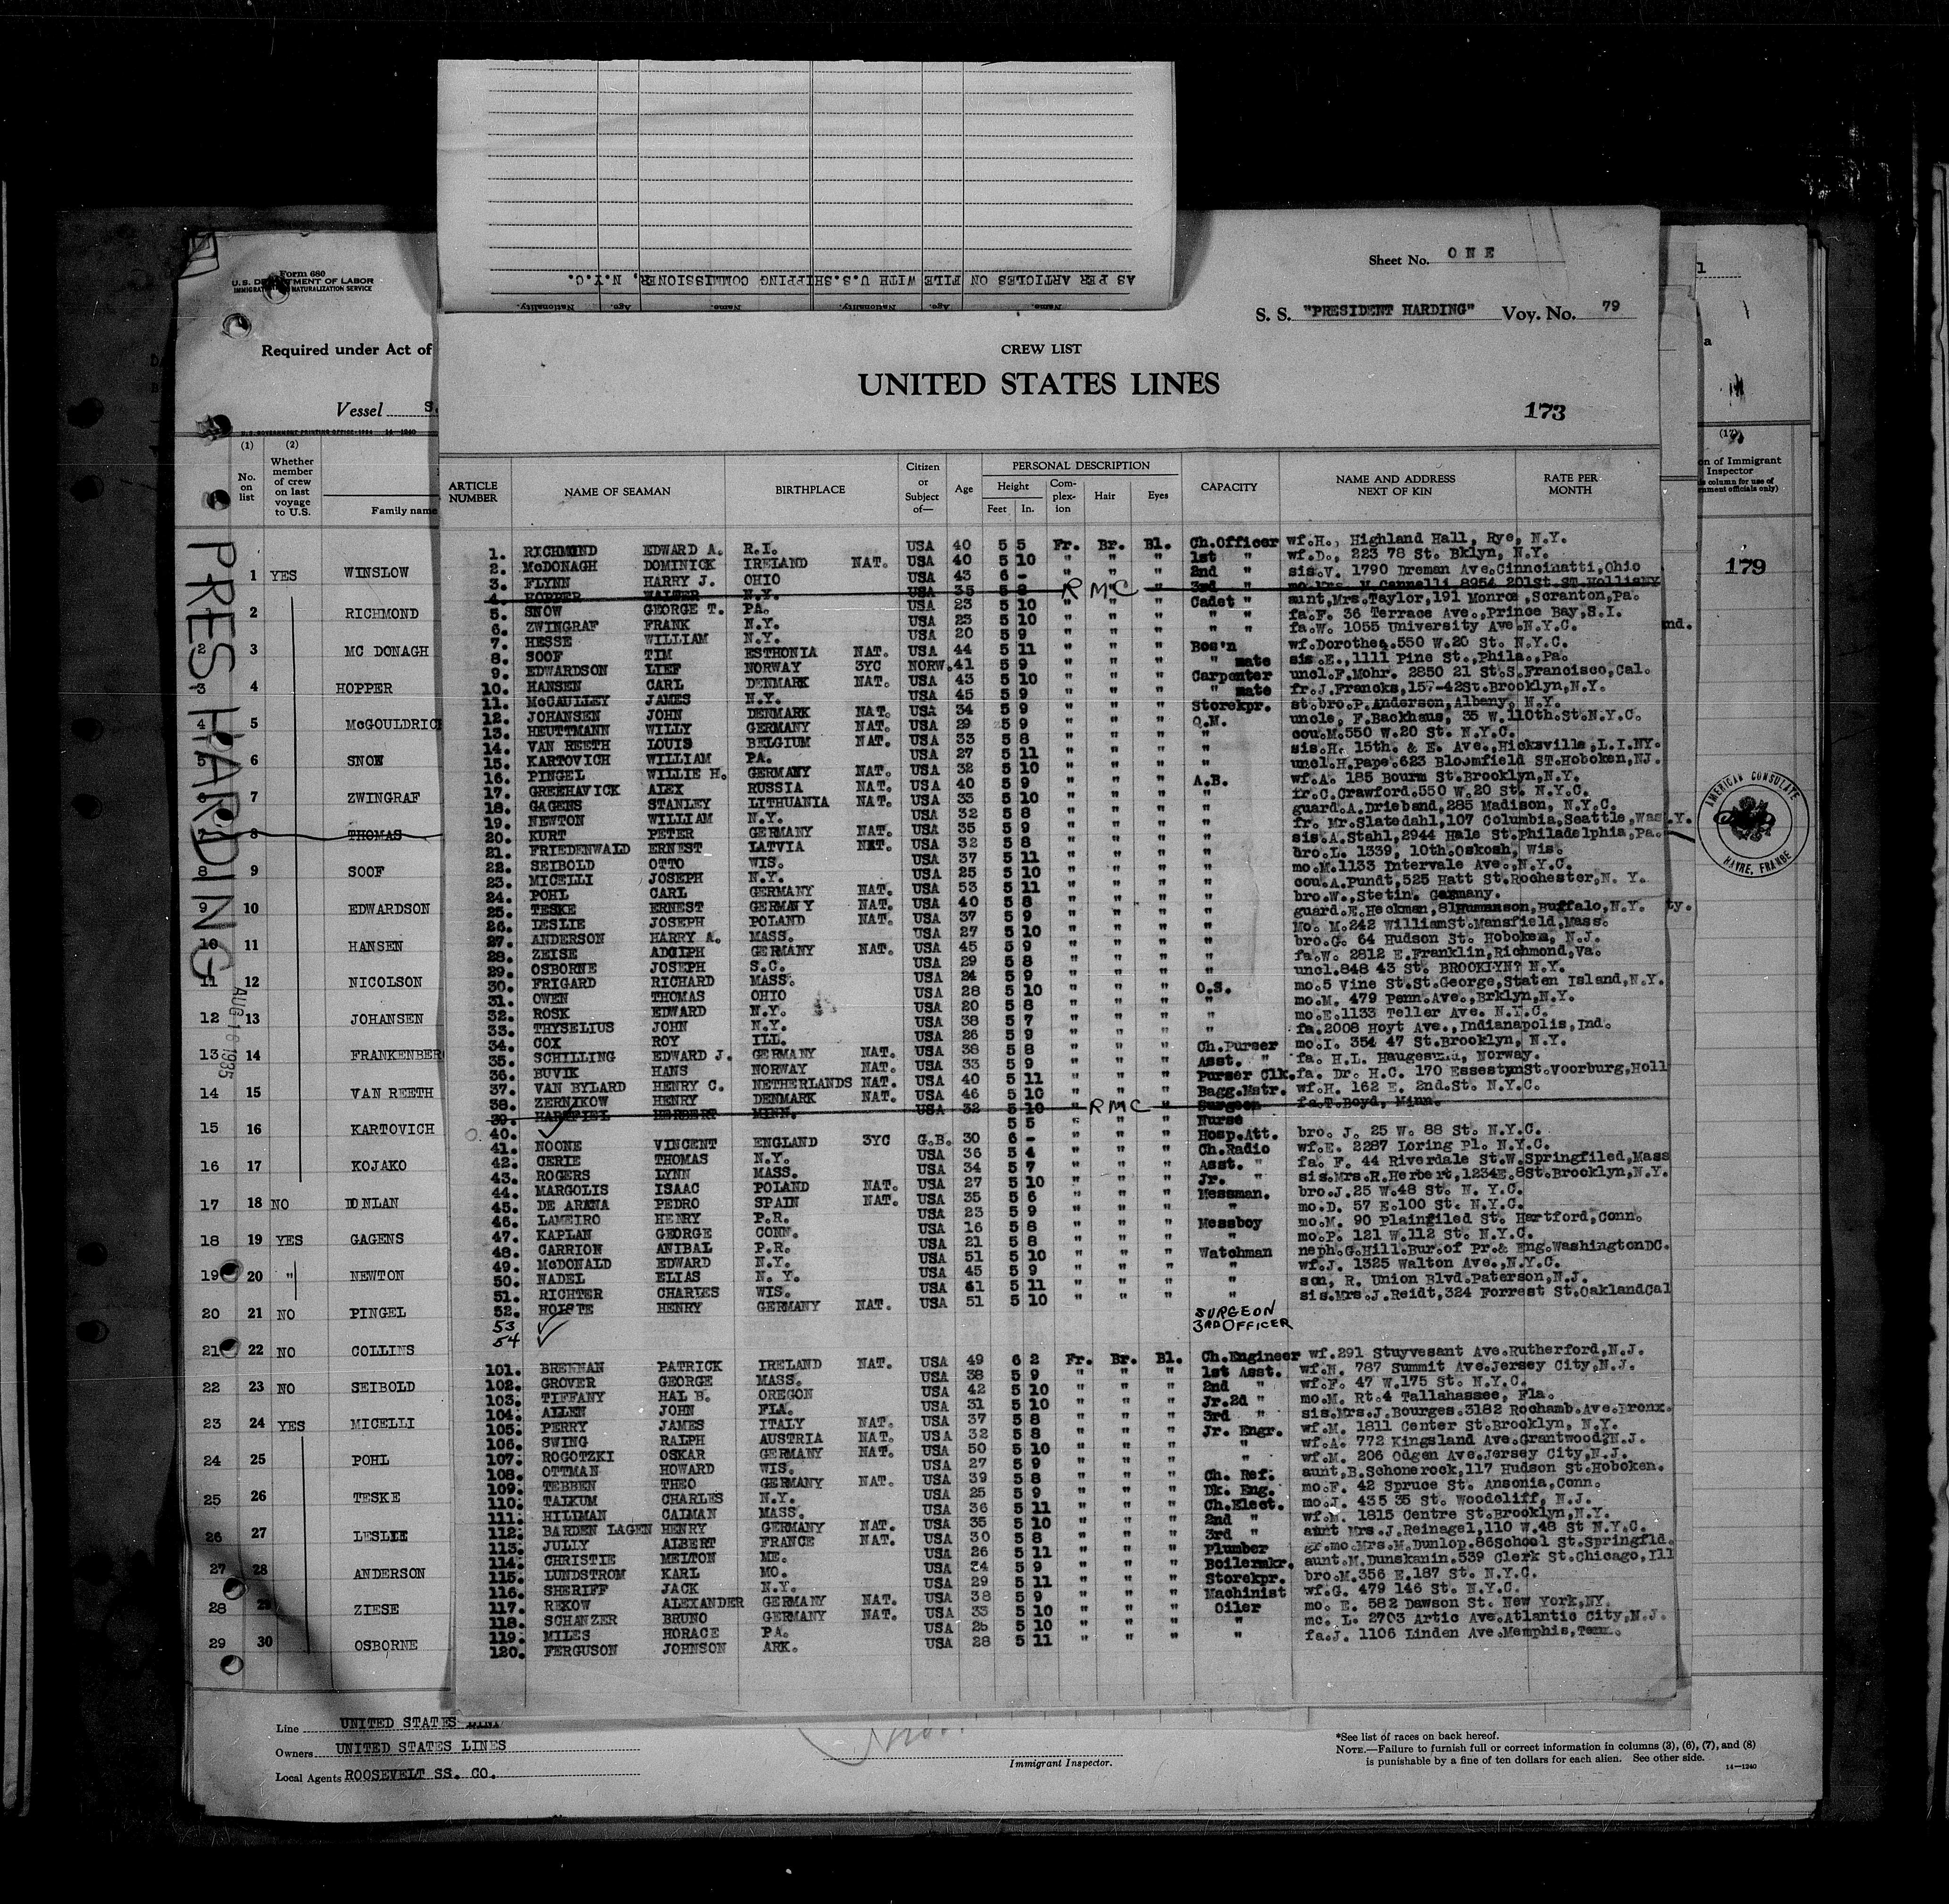 AS PER ARTICLES ON FILE WITH U.S. SHIPPING COMMISSIONER, N.Y.C.
Name. Age. Nationality. Name. Age. Nationality.
Sheet No. ONE
S. S. "PRESIDENT HARDING" Voy. No. 79
CREW LIST
UNITED STATES LINES
173
ARTICLE NUMBER NAME OF SEAMAN BIRTHPLACE Citizen or Subject of— Age PERSONAL DESCRIPTION Height Feet In. Complexion Hair Eyes CAPACITY NAME AND ADDRESS NEXT OF KIN RATE PER MONTH
1. RICHMOND EDWARD A. R.I. USA 40 5 5 Fr. Br. Bl. Ch.Officer wf.H., Highland Hall, Rye, N.Y.
2. McDONAGH DOMINICK IRELAND NAT. USA 40 5 10 " " " 1st " wf.D., 223 78 St. Bklyn, N.Y.
3. FLYNN HARRY J. OHIO USA 43 6 - " " " 2nd " sis.V. 1790 Dreman Ave.Cinncinatti,Ohio
4. HOPPER WALTER N.Y. USA 35 5 8 RMC " 3rd "
5. SNOW GEORGE T. PA. USA 23 5 10 " " " Cadet " aunt,Mrs.Taylor,191 Monroe,Scranton,Pa.
6. ZWINGRAF FRANK N.Y. USA 23 5 10 " " " " " fa.F. 36 Terrace Ave.,Prince Bay,S.I.
7. HESSE WILLIAM N.Y. USA 20 5 9 " " " " " fa.W. 1055 University Ave.N.Y.C.
8. SOOF TIM ESTHONIA NAT. USA 44 5 11 " " " Bos'n wf.Dorothea.550 W.20 St. N.Y.C.
9. EDWARDSON LIEF NORWAY 3YC NORW. 41 5 9 " " " " mate sis.E.,1111 Pine St.,Phila.,Pa.
10. HANSEN CARL DENMARK NAT. USA 43 5 10 " " " Carpenter uncl.F.Mohr. 2850 21 St.S.Francisco,Cal.
11. McCAULLEY JAMES N.Y. USA 45 5 9 " " " " mate fr.J.Francks,157-42St.Brooklyn,N.Y.
12. JOHANSEN JOHN DENMARK NAT. USA 34 5 9 " " " Storekpr. st.bro.P.Anderson,Albany, N.Y.
13. HEUTTMANN WILLY GERMANY NAT. USA 29 5 9 " " " Q.M. uncle, F.Backhaus, 35 W.110th.St.N.Y.C.
14. VAN REETH LOUIS BELGIUM NAT. USA 33 5 8 " " " " cou.M.550 W.20 St. N.Y.C.
15. KARTOVICH WILLIAM PA. USA 27 5 11 " " " " sis.H. 15th. & E. Ave.,Hicksville,L.I.NY.
16. PINGEL WILLIE H. GERMANY NAT. USA 32 5 10 " " " " uncl.H.Pape.623 Bloomfield ST.Hoboken,NJ.
17. GREEHAVICK ALEX RUSSIA NAT. USA 40 5 9 " " " A.B. wf.A. 185 Bourm St.Brooklyn,N.Y.
18. GAGENS STANLEY LITHUANIA NAT. USA 33 5 10 " " " " fr.C.Crawford.550 W.20 St. N.Y.C.
19. NEWTON WILLIAM N.Y. USA 32 5 8 " " " " guard.A.Drieband,285 Madison, N.Y.C.
20. KURT PETER GERMANY NAT. USA 35 5 9 " " " " fr. Mr.Slatedahl,107 Columbia,Seattle,Was
21. FRIEDENWALD ERNEST LATVIA NAT. USA 32 5 8 " " " " sis.A.Stahl,2944 Hale St.Philadelphia,Pa.
22. SEIBOLD OTTO WIS. USA 37 5 11 " " " " bro.L. 1339, 10th.Oskosh, Wis.
23. MICELLI JOSEPH N.Y. USA 25 5 10 " " " " mo.M.1133 Intervale Ave.,N.Y.C.
24. POHL CARL GERMANY NAT. USA 53 5 11 " " " " cou.A.Pundt,525 Hatt St.Rochester,N. Y.
25. TESKE ERNEST GERMANY NAT. USA 40 5 8 " " " " bro.W., Stetin. Germany.
26. LESLIE JOSEPH POLAND NAT. USA 37 5 9 " " " " guard.E.Heckman,81 Buffalo,N.Y.
27. ANDERSON HARRY A. MASS. USA 27 5 10 " " " " Mo. M.242 WilliamSt.Mansfield,Mass.
28. ZEISE ADOLPH GERMANY NAT. USA 45 5 9 " " " " bro.G. 64 Hudson St. Hoboken, N.J.
29. OSBORNE JOSEPH S.C. USA 29 5 8 " " " " fa.W. 2812 E.Franklin,Richmond,Va.
30. FRIGARD RICHARD MASS. USA 24 5 9 " " " " uncl.848 43 St. BROOKLYN? N.Y.
31. OWEN THOMAS OHIO USA 28 5 10 " " " O.S. mo.5 Vine St.St.George,Staten Island,N.Y.
32. ROSK EDWARD N.Y. USA 20 5 8 " " " " mo.M. 479 Penn.Ave.,Brklyn,N.Y.
33. THYSELIUS JOHN N.Y. USA 38 5 7 " " " " mo.E.1133 Teller Ave. N.Y.C.
34. COX ROY ILL. USA 26 5 9 " " " " fa.2008 Hoyt Ave.,Indianapolis,Ind.
35. SCHILLING EDWARD J. GERMANY NAT. USA 38 5 8 " " " Ch.Purser mo.I. 354 47 St.Brooklyn, N.Y.
36. BUVIK HANS NORWAY NAT. USA 33 5 9 " " " Asst. " fa. H.L. Haugesund, Norway.
37. VAN BYLARD HENRY C. NETHERLANDS NAT. USA 40 5 11 " " " Purser Clk. fa. Dr. H.C. 170 EssestynSt.Voorburg,Holl
38. ZERNIKOW HENRY DENMARK NAT. USA 46 5 10 " " " Bagg.Mstr. wf.H. 162 E. 2nd.St. N.Y.C.
39. HERBERT MINN. USA 32 5 10 " RMC " Surgeon fa.T.Boyd, Minn.
40. ✓ 5 5 " " " Nurse
41. NOONE VINCENT ENGLAND 3YC G.B. 30 6 - " " " Hosp.Att. bro. J. 25 W. 88 St. N.Y.C.
42. CERIE THOMAS N.Y. USA 36 5 4 " " " Ch.Radio wf.E. 2287 Loring Pl. N.Y.C.
43. ROGERS LYNN MASS. USA 34 5 7 " " " Asst. " fa. F. 44 Riverdale St.W.Springfiled,Mass
44. MARGOLIS ISAAC POLAND NAT. USA 27 5 10 " " " Jr. " sis.Mrs.R.Herbert,1234E.8St.Brooklyn,N.Y.
45. DE ARENA PEDRO SPAIN NAT. USA 35 5 6 " " " Messman. bro.J.25 W.48 St. N. Y.C.
46. LAMEIRO HENRY P.R. USA 23 5 9 " " " " mo.D. 57 E.100 St. N.Y.C.
47. KAPLAN GEORGE CONN. USA 16 5 8 " " " Messboy mo.M. 90 Plainfiled St. Hartford,Conn.
48. CARRION ANIBAL P.R. USA 21 5 8 " " " " mo.P. 121 W.112 St. N.Y.C.
49. McDONALD EDWARD N.Y. USA 51 5 10 " " " Watchman neph.G.Hill.Bur.of Pr.& Eng.WashingtonDC.
50. NADEL ELIAS N. Y. USA 45 5 9 " " " " wf.J. 1325 Walton Ave.,N.Y.C.
51. RICHTER CHARLES WIS. USA 61 5 11 " " " " son, R. Union Blvd.Paterson,N.J.
52. HOLSTE HENRY GERMANY NAT. USA 51 5 10 " " " " sis.Mrs.J.Reidt,324 Forrest St.OaklandCal
53 ✓ SURGEON
54 ✓ 3RD OFFICER
101. BRENNAN PATRICK IRELAND NAT. USA 49 6 2 Fr. Br. Bl. Ch.Engineer wf.291 Stuyvesant Ave.Rutherford,N.J.
102. GROVER GEORGE MASS. USA 38 5 9 " " " 1st Asst. wf.N. 787 Summit Ave.Jersey City,N.J.
103. TIFFANY HAL B. OREGON USA 42 5 10 " " " 2nd " wf.F. 47 W.175 St. N.Y.C.
104. ALLEN JOHN FLA. USA 31 5 10 " " " Jr.2d " mo.M. Rt.4 Tallahassee, Fla.
105. PERRY JAMES ITALY NAT. USA 37 5 8 " " " 3rd " sis.Mrs.J.Bourges.3182 Rochamb.Ave.Bronx.
106. SWING RALPH AUSTRIA NAT. USA 32 5 8 " " " Jr. Engr. wf.M. 1811 Center St.Brooklyn, N.Y.
107. ROGOTZKI OSKAR GERMANY NAT. USA 50 5 10 " " " " wf.A. 772 Kingsland Ave.Grantwood?N.J.
108. OTTMAN HOWARD WIS. USA 27 5 9 " " " " wf.M. 206 Odgen Ave.Jersey City,N.J.
109. TEBBEN THEO GERMANY NAT. USA 39 5 8 " " " Ch. Ref. aunt,B.Schonerock,117 Hudson St.Hoboken.
110. TAIKUM CHARLES N.Y. USA 25 5 9 " " " Dk. Eng. mo.F. 42 Spruce St. Ansonia,Conn.
111. HILLMAN CALMAN MASS. USA 36 5 11 " " " Ch.Elect. mo.J. 435 35 St. Woodcliff, N.J.
112. BARDEN LAGEN HENRY GERMANY NAT. USA 35 5 10 " " " 2nd " wf.M. 1815 Centre St.Brooklyn,N.Y.
113. JULLY ALBERT FRANCE NAT. USA 30 5 8 " " " 3rd " aunt Mrs.J.Reinagel,110 W.48 St N.Y.C.
114. CHRISTIE MELTON ME. USA 26 5 11 " " " Plumber gr.mo.Mrs.M.Dunlop.86School St.Springfld.
115. LUNDSTROM KARL MO. USA 24 5 9 " " " Boilermkr. aunt.M.Dunskanin.539 Clerk St.Chicago,Ill
116. SHERIFF JACK N.Y. USA 29 5 11 " " " Storekpr. bro.M.356 E.187 St. N.Y.C.
117. REKOW ALEXANDER GERMANY NAT. USA 38 5 9 " " " Machinist wf.G. 479 146 St. N.Y.C.
118. SCHANZER BRUNO GERMANY NAT. USA 35 5 10 " " " Oiler mo. E. 582 Dawson St. New York,NY.
119. MILES HORACE PA. USA 26 5 10 " " " " mo. L. 2703 Artic Ave.Atlantic City,N.J.
120. FERGUSON JOHNSON ARK. USA 28 5 11 " " " " fa.J. 1106 Linden Ave.Memphis,Tenn.
Form 680
U.S. DEPARTMENT OF LABOR
IMMIGRATION NATURALIZATION SERVICE
Required under Act of
Vessel S.
U.S. GOVERNMENT PRINTING OFFICE: 1934 14—1240
(1) (2)
No. on list
Whether member of crew on last voyage to U.S.
Family name
PRES HARDING
AUG 16 1935
1 YES WINSLOW
1 2 RICHMOND
2 3 MC DONAGH
3 4 HOPPER
4 5 McGOULDRIC
5 6 SNOW
6 7 ZWINGRAF
7 8 THOMAS
8 9 SOOF
9 10 EDWARDSON
10 11 HANSEN
11 12 NICOLSON
12 13 JOHANSEN
13 14 FRANKENBER
14 15 VAN REETH
15 16 KARTOVICH
16 17 KOJAKO
17 18 NO DONLAN
18 19 YES GAGENS
19 20 " NEWTON
20 21 NO PINGEL
21 22 NO COLLINS
22 23 NO SEIBOLD
23 24 YES MICELLI
24 25 POHL
25 26 TESKE
26 27 LESLIE
27 28 ANDERSON
28 29 ZIESE
29 30 OSBORNE
(17)
on of Immigrant
Inspector
column for use of
ment officials only)
179
nd.
.Y.
ty.
AMERICAN CONSULATE
HAVRE, FRANCE
Line UNITED STATES LINE
Owners UNITED STATES LINES
Local Agents ROOSEVELT SS. CO.
Immigrant Inspector.
*See list of races on back hereof.
NOTE.—Failure to furnish full or correct information in columns (3), (6), (7), and (8)
is punishable by a fine of ten dollars for each alien. See other side.
14—1240